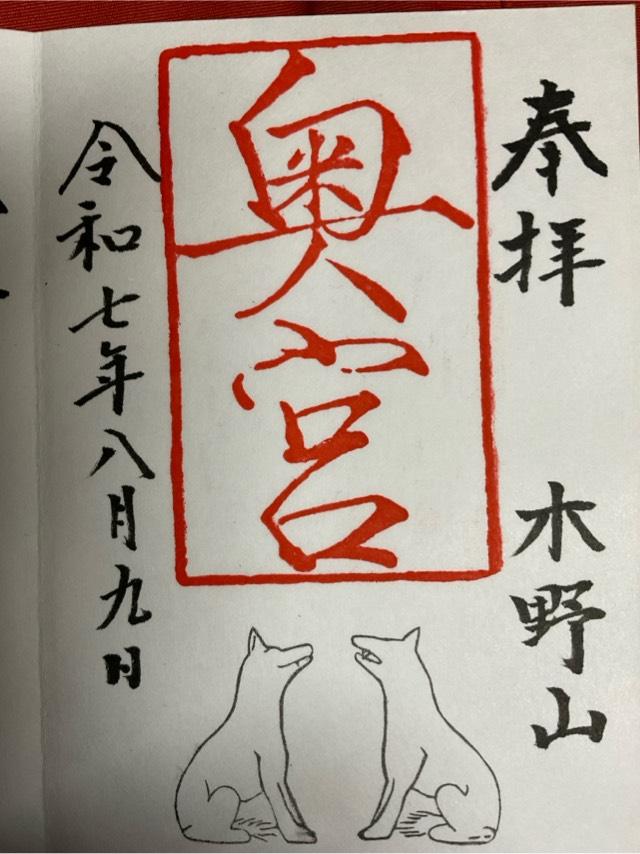 奉拝
木野山
奥宮
令和七年八月九日